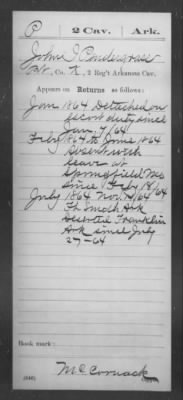 P 2 Cav. Ark.
John S Pendergrass
Pvt, Co. K, 2 Reg't Arkansas Cav.
Appears on Returns as follows:
Jan 1864 Detached on
escort duty since
Jan. 7/64
Feby 1864 to June 1864
Absent with
leave at
Springfield Mo
since Feby 18/64
July 1864 Nov. /64
Ft Smith Ark
Deserted Franklin
Ark since July
27-64
Book mark:
McCormack
(646)